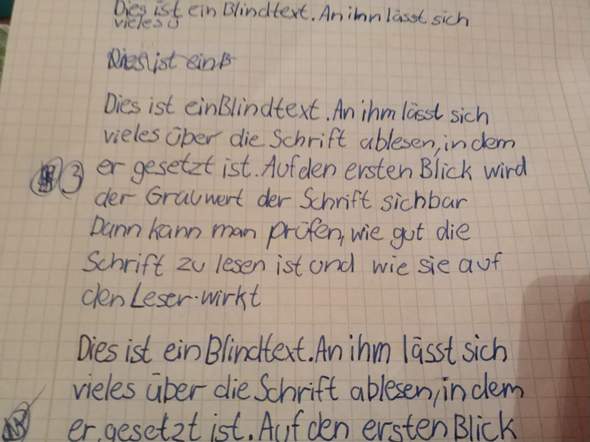 Dies ist ein Blindtext. An ihm lässt sich
vieles ü
Dies ist ein B
Dies ist ein Blindtext. An ihm lässt sich
vieles über die Schrift ablesen, in dem
3 er gesetzt ist. Auf den ersten Blick wird
der Grauwert der Schrift sichbar
Dann kann man prüfen, wie gut die
Schrift zu lesen ist und wie sie auf
den Leser wirkt
Dies ist ein Blindtext. An ihm lässt sich
vieles über die Schrift ablesen, in dem
er gesetzt ist. Auf den ersten Blick